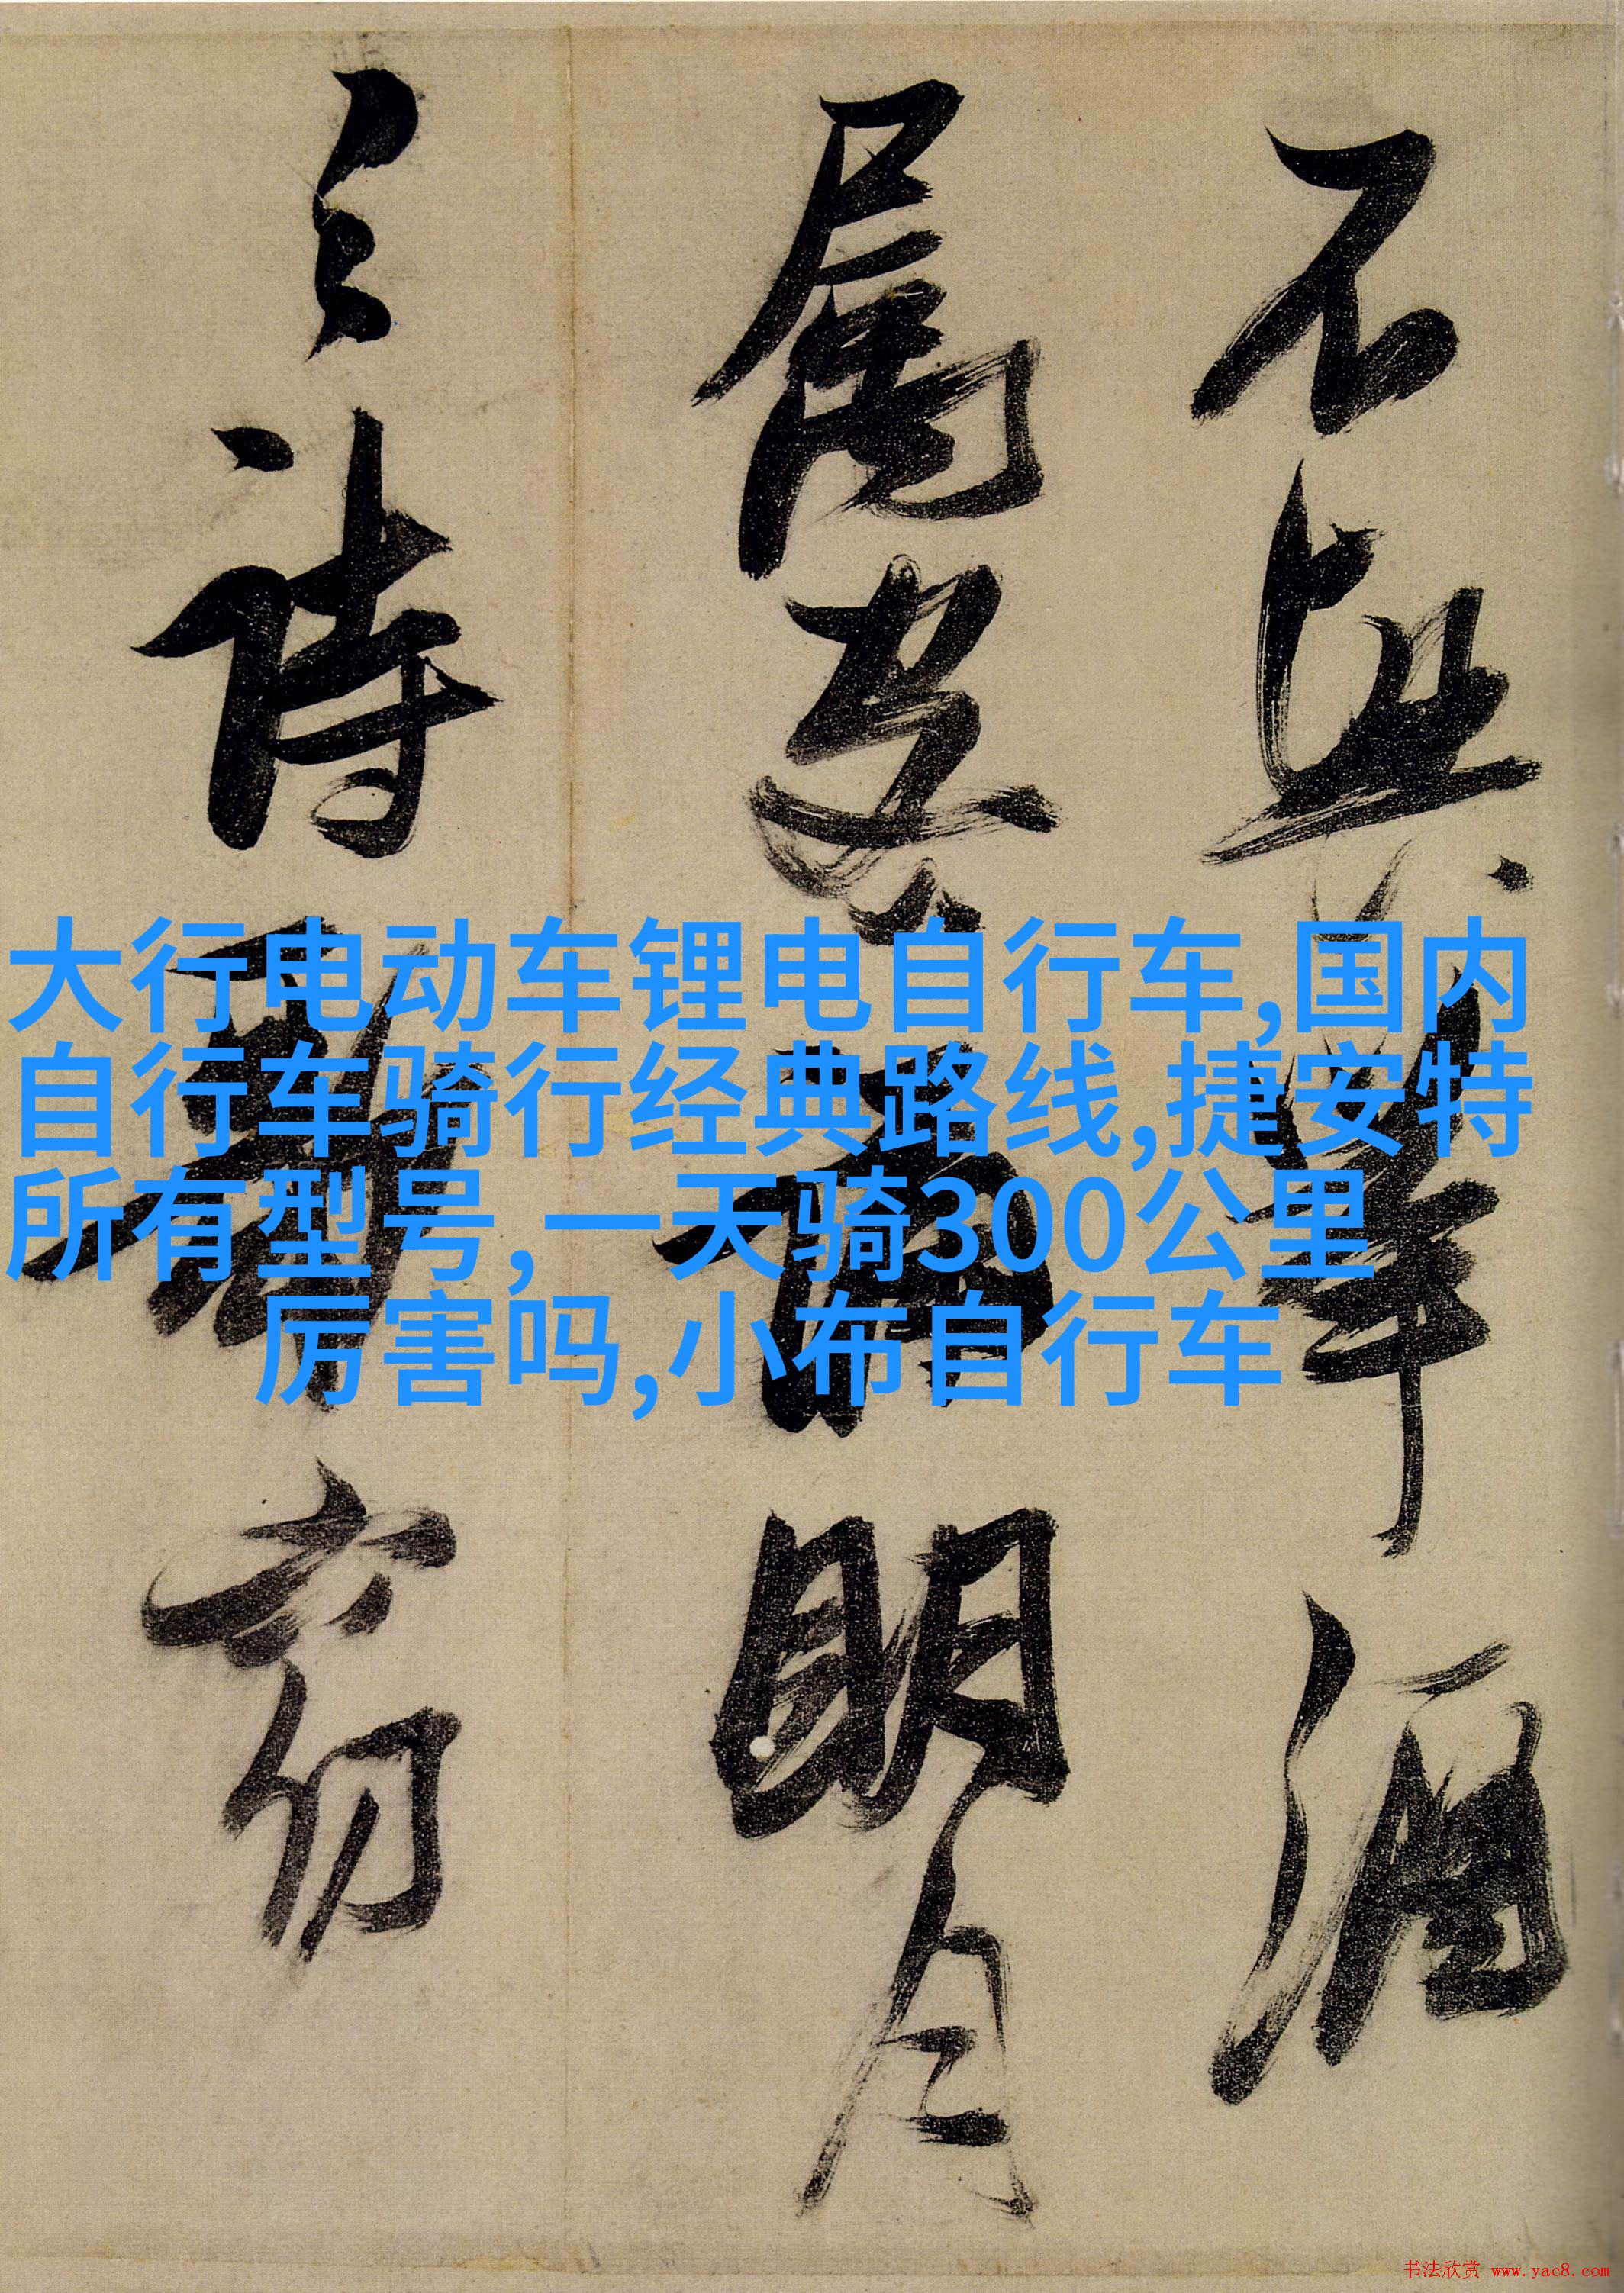 不興舉酒
屬客誦明月
之詩歌窈
大行电动车锂电自行车,国内
自行车骑行经典路线,捷安特
所有型号,一天骑300公里
厉害吗,小布自行车
书法欣赏 www.yac8.com